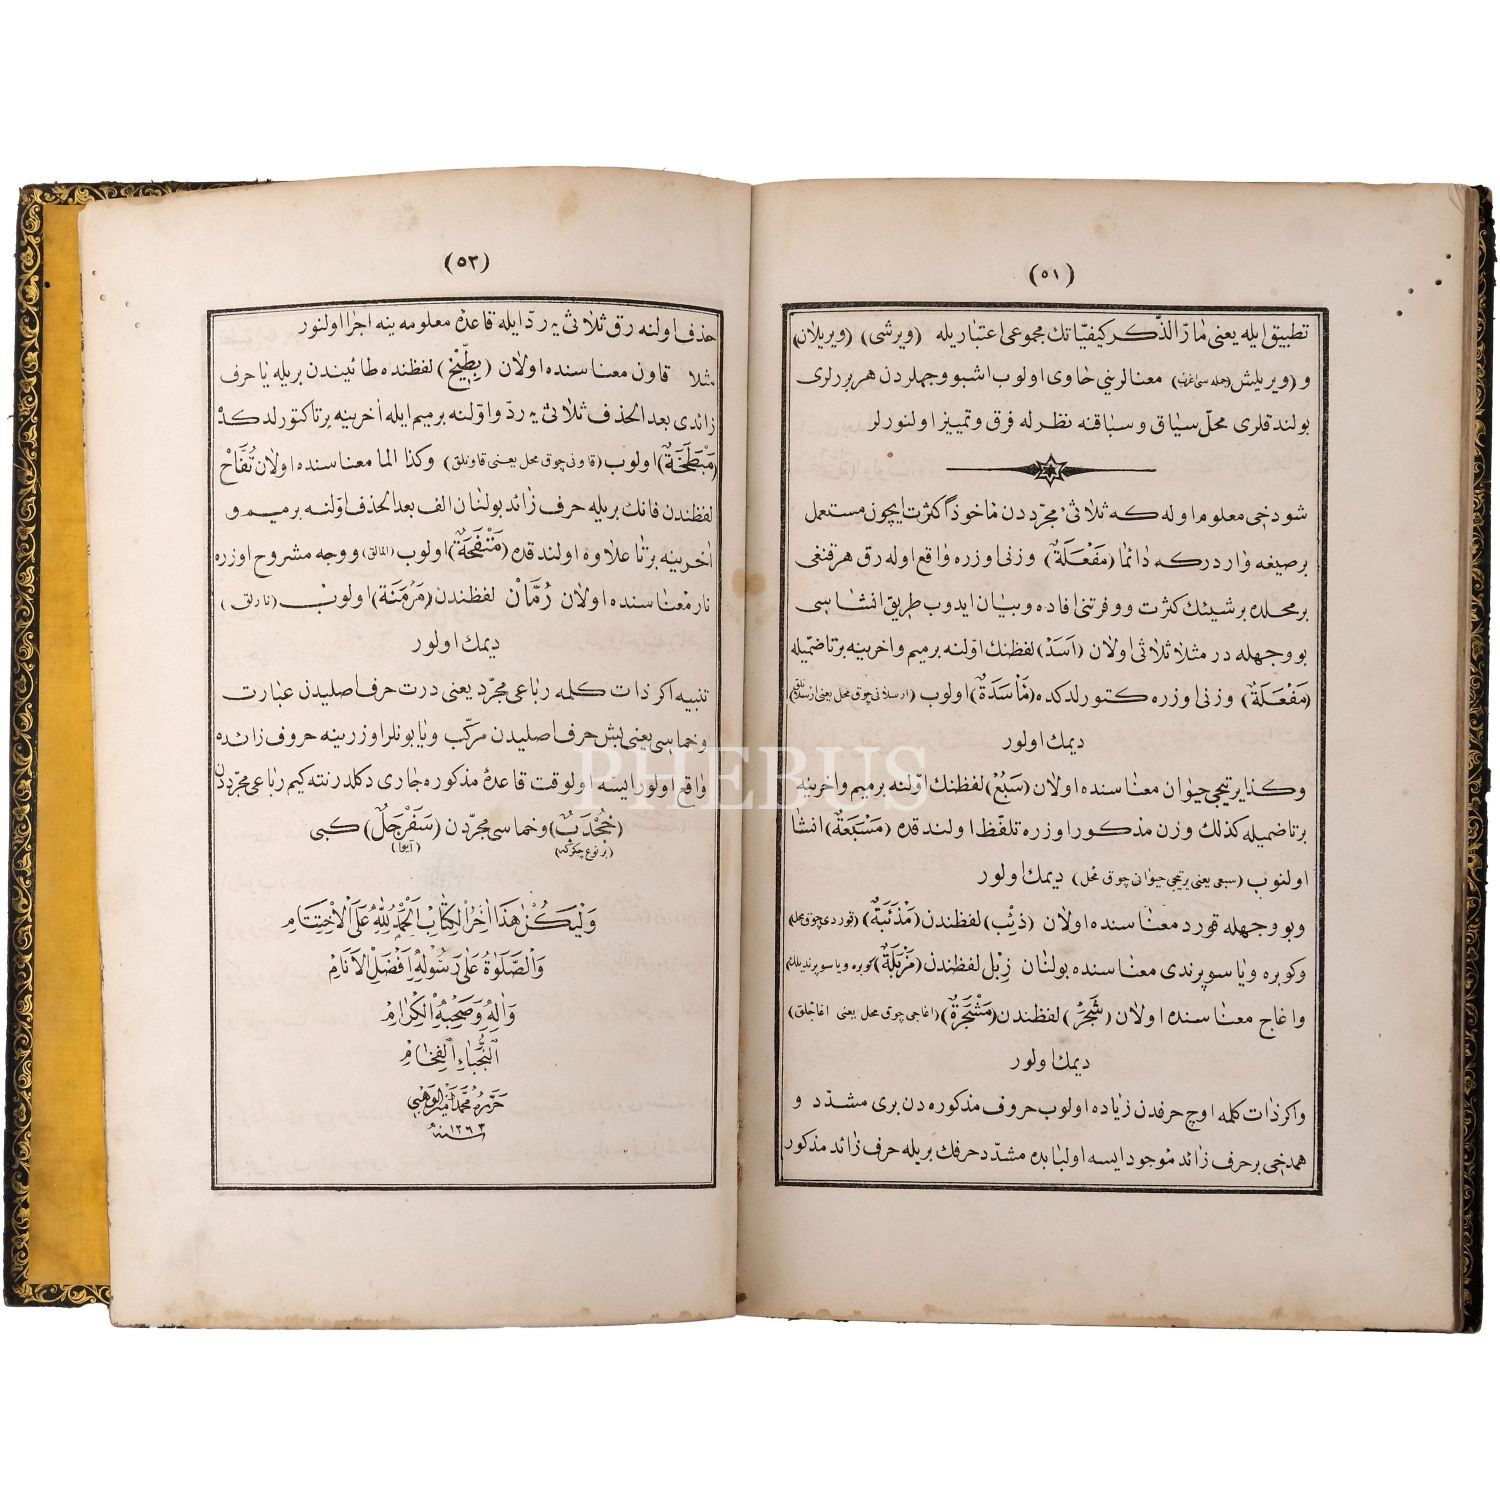 (٥١)
تطبيق ايله يعنى مارّ الذّكر كيفيّاتك مجموعى اعتباريله (ويرشى) (ويريلان)
و (ويريلش) معنالرينى حاوى اولوب اشبو وجهلردن هر بررلرى
بولندقلرى محلّ سياق و سباقنه نظرله فرق و تمييز اولنورلر
شو دخى معلوم اوله كه ثلاثئ مجرّد دن مأخوذ كثرت ايچون مستعمل
بر صيغه واردركه دائما (مَفْعَلَةٌ) وزنى اوزره واقع اوله رق هر قنغى
بر محلده بر شيئك كثرت و وفرتنى افاده و بيان ايدوب طريق انشاسى
بو وجهله در مثلا ثلاثى اولان (اَسَدْ) لفظنك اوّلنه بر ميم و اخرينه بر تا ضميله
(مَفْعَلَةٌ) وزنى اوزره كتورلدكده (مَأْسَدَةٌ) اولوب (ارسلانى چوق محل يعنى ارسلانلق)
ديمك اولور
وكذا يرتيجى حيوان معناسنده اولان (سَبُعْ) لفظنك اوّلنه بر ميم و اخرينه
بر تا ضميله كذلك وزن مذكور اوزره تلفّظ اولندقده (مَسْبَعَةٌ) انشا
اولنوب (سبعى يعنى يرتيجى حيوانى چوق محل) ديمك اولور
و بو وجهله قورد معناسنده اولان (ذِئْب) لفظندن (مَذْئَبَةٌ) (قوردى چوق محل)
وكوبره ويا سوپرندى معناسنده بولنان زِبْل لفظندن (مَزْبَلَةٌ) كوبره ويا سوپرنديلك)
و اغاج معناسنده اولان (شَجَرْ) لفظندن (مَشْجَرَةٌ) (اغاجى چوق محل يعنى اغاجلق)
ديمك اولور
و اكر ذات كلمه اوچ حرفدن زياده اولوب حروف مذكوره دن برى مشدّد و
همدخى بر حرف زائد موجود ايسه اولبابده مشدّد حرفك بريله حرف زائد مذكور
(٥٢)
حذف اولنه رق ثلاثى يه ردّ ايله قاعدۀ معلومه ينه اجرا اولنور
مثلا قاون معناسنده اولان (بِطِّيْخ) لفظنده طائيندن بريله يا حرف
زائدى بعد الحذف ثلاثى يه ردّ و اوّلنه بر ميم ايله اخرينه بر تا كتورلدكده
(مَبْطَخَةٌ) اولوب (قاونى چوق محل يعنى قاونلق) وكذا الما معناسنده اولان تُفَّاحْ
لفظندن فانك بريله حرف زائد بولنان الف بعد الحذف اوّلنه بر ميم و
اخرينه بر تا علاوه اولندقده (مَتْفَحَةٌ) اولوب (المالق) و وجه مشروح اوزره
نار معناسنده اولان رُمَّانْ لفظندن (مَرْمَنَة) اولوب (نارلق)
ديمك اولور
تنبيه اكر ذات كلمه رباعى مجرّد يعنى درت حرف اصليدن عبارت
و خماسى يعنى بش حرف اصليدن مركّب ويا بونلر اوزرينه حروف زائده
واقع اولور ايسه اولوقت قاعدۀ مذكوره جارى دكلدر نته كيم رباعى مجرّددن
(جُخْدَبٌ) و خماسى مجرّد دن (سَفَرْجَلٌ) كبى
(بر نوع چكركه) (ايوا)
وَلْيَكُنْ هٰذَا اٰخِرُ الْكِتَابْ اَلْحَمْدُ لِلّٰهِ عَلَى الْاِخْتِتَامِ
وَالصَّلَوٰةُ عَلٰى رَسُوْلِهِ اَفْضَلِ الْاَنَامِ
وَاٰلِهِ وَصَحْبِهِ الْكِرَامِ
اَلنُّجَبَاءِ الْفِخَامِ
حرّره محمّد امين الوهبى
سنه ١٢٦٣
PHEBUS